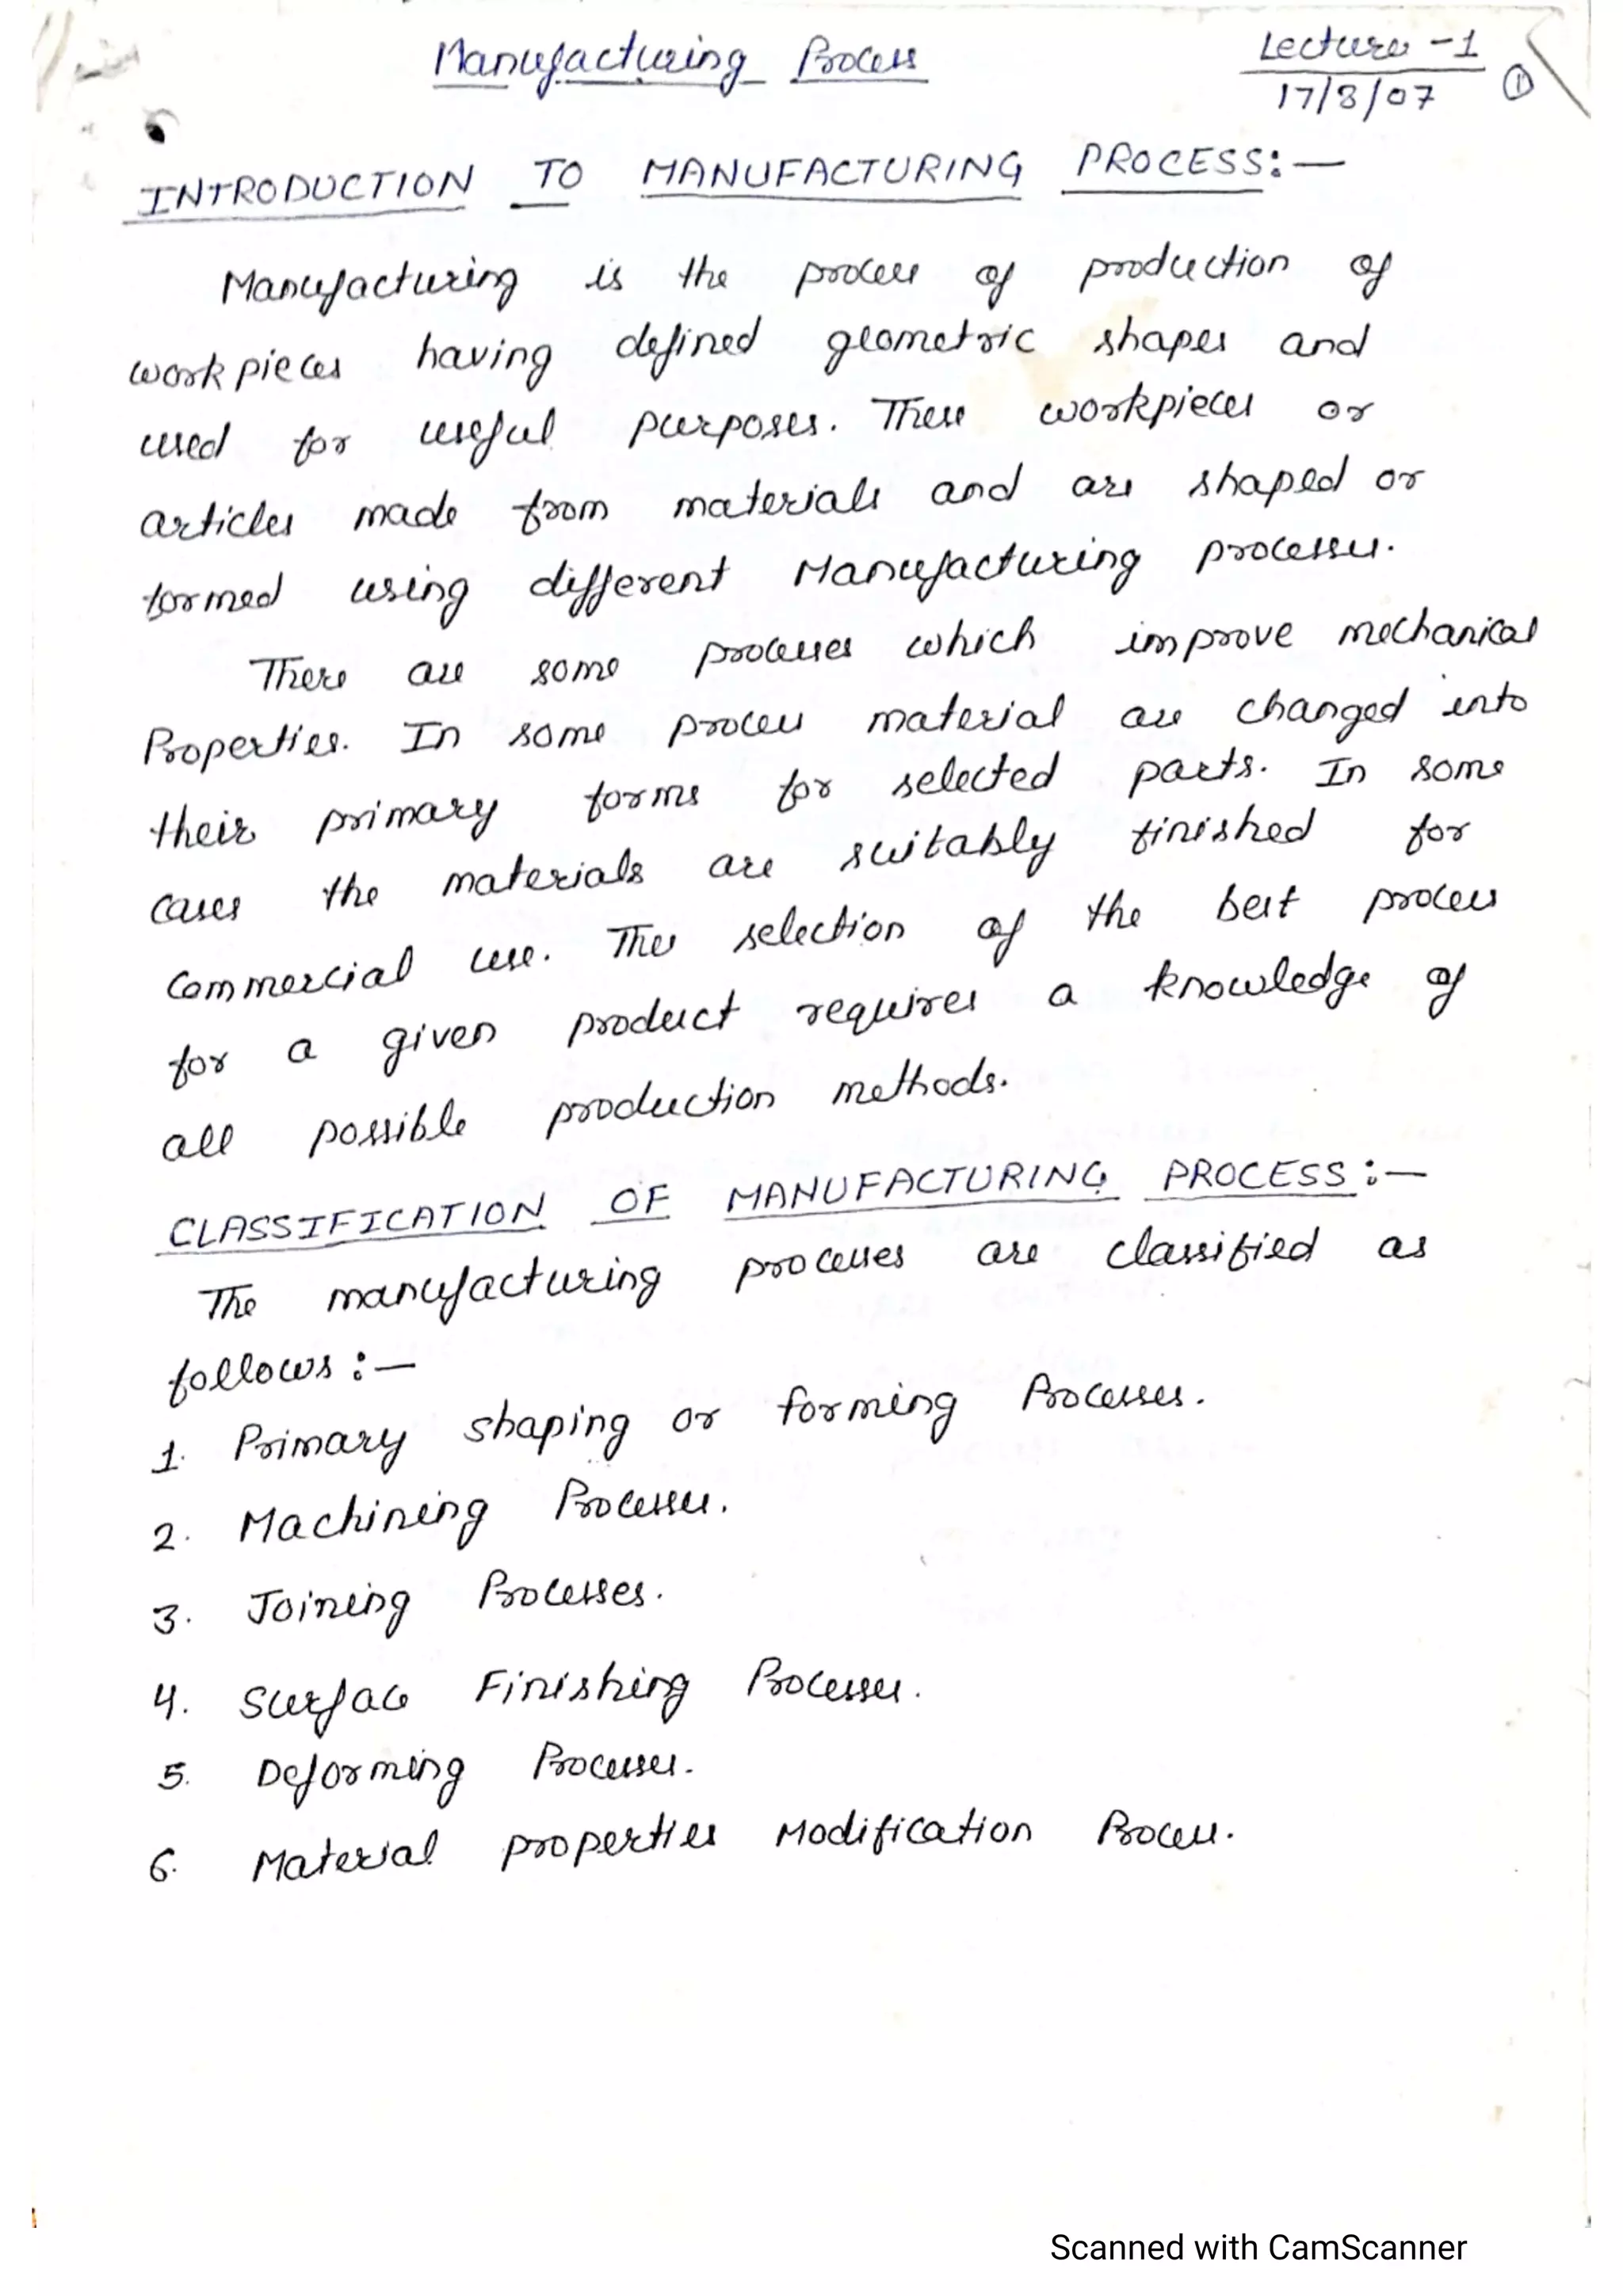 Manufacturing Process
Lecture -1
17/8/07
1
INTRODUCTION TO MANUFACTURING PROCESS:—
Manufacturing is the process of production of
workpieces having defined geometric shapes and
used for useful purposes. These workpieces or
articles made from materials and are shaped or
formed using different Manufacturing processes.
There are some processes which improve mechanical
Properties. In some process material are changed into
their primary forms for selected parts. In some
cases the materials are suitably finished for
Commercial use. Thus selection of the best process
for a given product requires a knowledge of
all possible production methods.
CLASSIFICATION OF MANUFACTURING PROCESS:—
The manufacturing processes are classified as
follows:—
1. Primary shaping or forming Processes.
2. Machining Processes.
3. Joining Processes.
4. Surface Finishing Processes.
5. Deforming Processes.
6. Material properties Modification Process.
Scanned with CamScanner